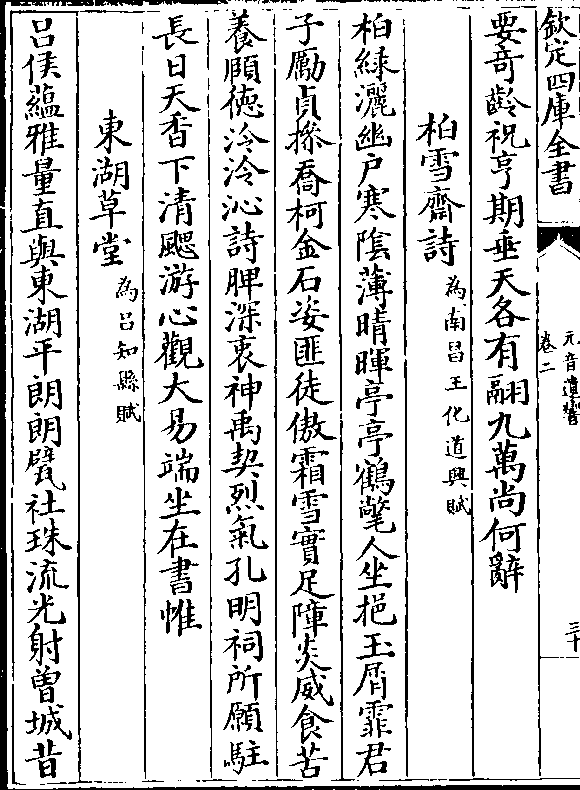 欽定四庫全書
元音遺響
卷二
三十
要竒齡祝亨期垂天各有翮九萬尚何辭
柏雪齋詩為南昌王化道興賦
柏緑灑幽户寒陰薄晴暉亭亭鶴氅人坐挹玉屑霏君
子勵貞操喬柯金石姿匪徒傲霜雪實足障炎威食苦
養頤徳泠泠沁詩脾深衷神禹契烈氣孔明祠所願駐
長日天香下清颸游心觀大易端坐在書帷
東湖草堂為吕知縣賦
吕侯蘊雅量直與東湖平朗朗甓社珠流光射曽城昔